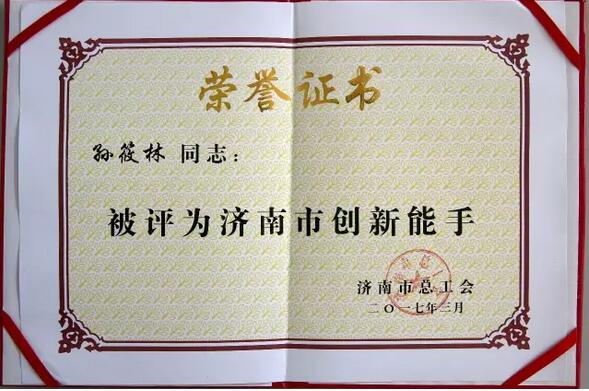 荣誉证书
孙筱林 同志：
被评为济南市创新能手
济南市总工会
二〇一七年三月